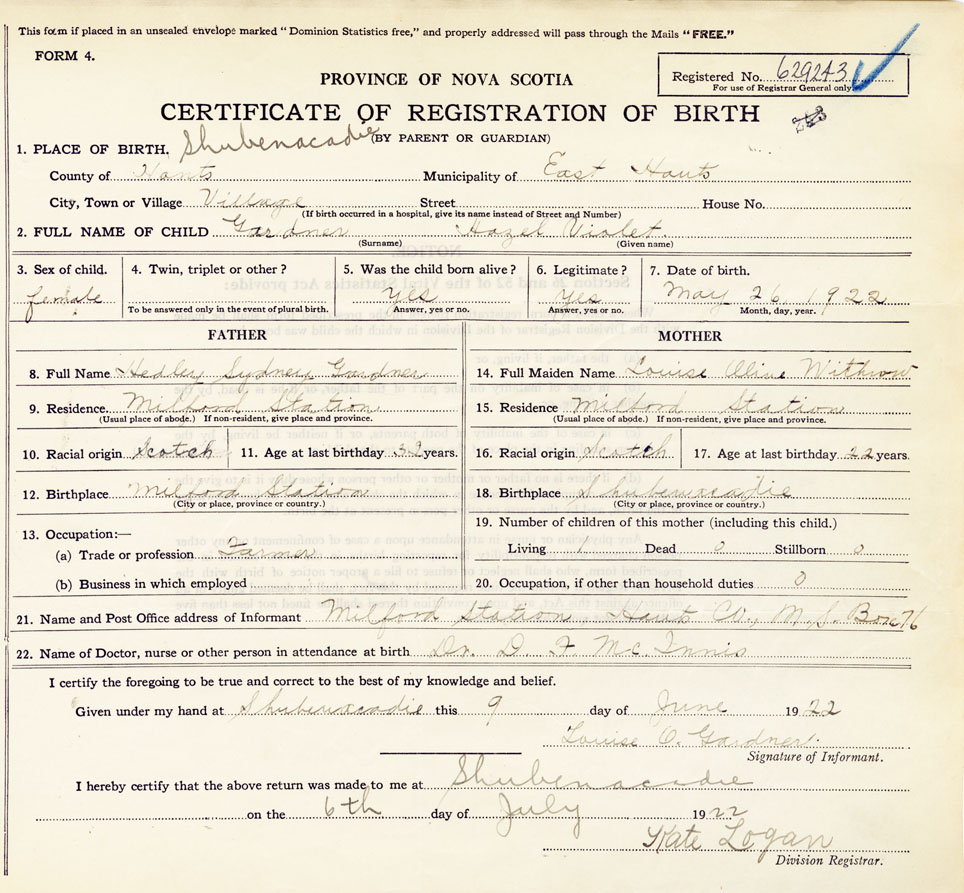 This form if placed in an unsealed envelope marked "Dominion Statistics free," and properly addressed will pass through the Mails "FREE."
FORM 4.
PROVINCE OF NOVA SCOTIA
Registered No. 629243
For use of Registrar General only.
CERTIFICATE OF REGISTRATION OF BIRTH
(BY PARENT OR GUARDIAN)
1. PLACE OF BIRTH. Shubenacadie
County of Hants Municipality of East Hants
City, Town or Village Village Street House No.
(If birth occurred in a hospital, give its name instead of Street and Number)
2. FULL NAME OF CHILD Gardner Hazel Violet
(Surname) (Given name)
3. Sex of child. 4. Twin, triplet or other? 5. Was the child born alive? 6. Legitimate? 7. Date of birth.
female Yes Yes May 26, 1922
To be answered only in the event of plural birth. Answer, yes or no. Answer, yes or no. Month, day, year.
FATHER
8. Full Name Hedley Sydney Gardner
9. Residence. Milford Station
(Usual place of abode.) If non-resident, give place and province.
10. Racial origin Scotch 11. Age at last birthday 32 years.
12. Birthplace Milford Station
(City or place, province or country.)
13. Occupation:—
(a) Trade or profession Farmer
(b) Business in which employed
MOTHER
14. Full Maiden Name Louise Olive Withrow
15. Residence Milford Station
(Usual place of abode.) If non-resident, give place and province.
16. Racial origin Scotch 17. Age at last birthday 22 years.
18. Birthplace Shubenacadie
(City or place, province or country.)
19. Number of children of this mother (including this child.)
Living 1 Dead 0 Stillborn 0
20. Occupation, if other than household duties 0
21. Name and Post Office address of Informant Milford Station, Hants Co., N.S. Box 76
22. Name of Doctor, nurse or other person in attendance at birth Dr. D. F. McInnis
I certify the foregoing to be true and correct to the best of my knowledge and belief.
Given under my hand at Shubenacadie this 9 day of June 1922
Louise O. Gardner.
Signature of Informant.
I hereby certify that the above return was made to me at Shubenacadie
on the 6th day of July 1922
Kate Logan
Division Registrar.